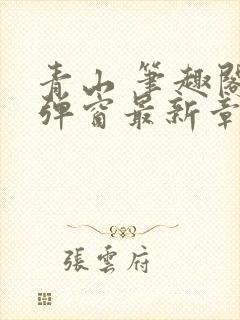 青山 筆趣閣
彈窗最新章
張雲府